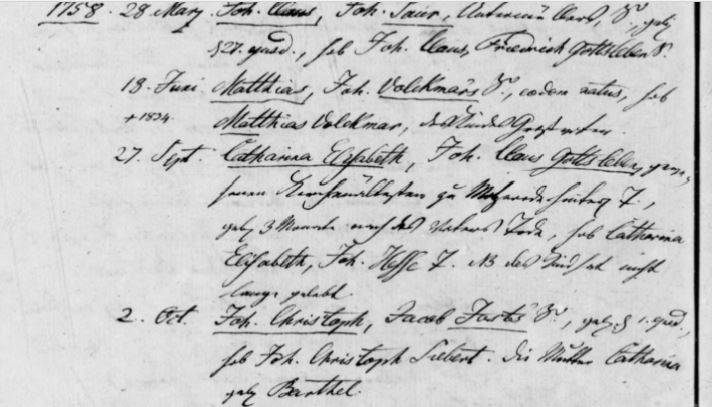 1758. 28 Marz Joh. Claus, Joh. Saur, S., geb.
§ 27. ejusd., heb Joh. Claus, Friedrich Gottsleben S.
18. Juni Matthias, Joh. Volckmars S., eodem natus, heb
+ 1834. Matthias Volckmar, des Kindes Großvater.
27. Sept. Catharina Elisabeth, Joh. Claus Gottsleben, gewe-
senen zu T.,
geb. 3 Monate nach des Vaters Tode, heb Catharina
Elisabeth, Joh. Hesse T. NB des Kind hat nicht
lange gelebt
2. Oct. Joh. Christoph, Jacob S., geb. § 1. ejusd.,
heb Joh. Christoph Siebert. Die Mutter Catharina
geb Barthel.